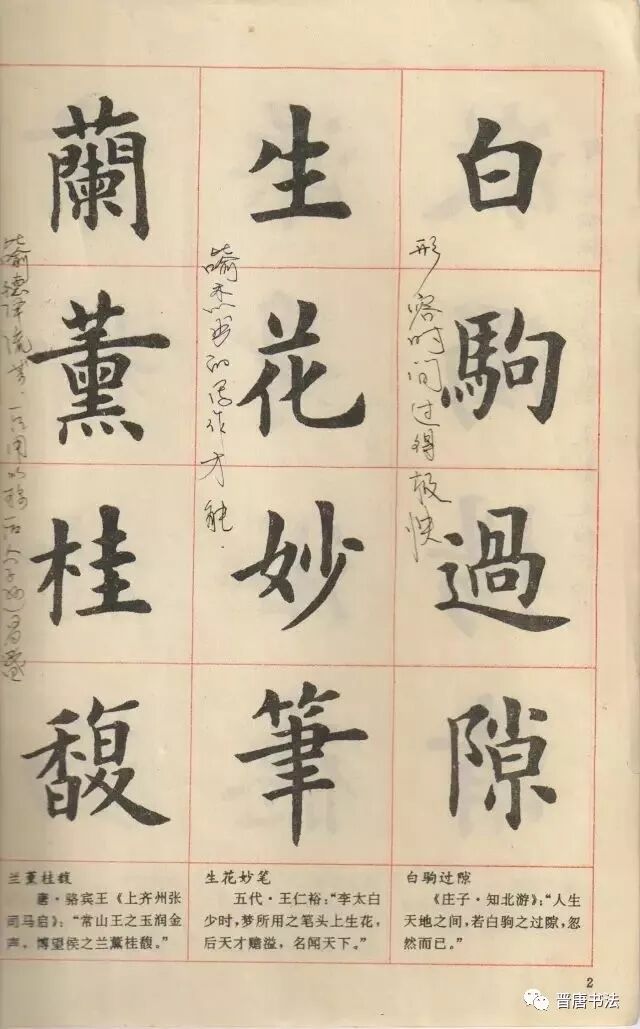 白駒過隙
形容时间过得极快
生花妙筆
喻杰出的写作才能.
蘭薰桂馥
喻德泽流芳
白驹过隙
《庄子·知北游》:“人生
天地之间,若白驹之过隙,忽
然而已。”
生花妙笔
五代·王仁裕:“李太白
少时,梦所用之笔头上生花,
后天才赡溢,名闻天下。”
兰薰桂馥
唐·骆宾王《上齐州张
司马启》:“常山王之玉润金
声,博望侯之兰薰桂馥。”
2
晋唐书法